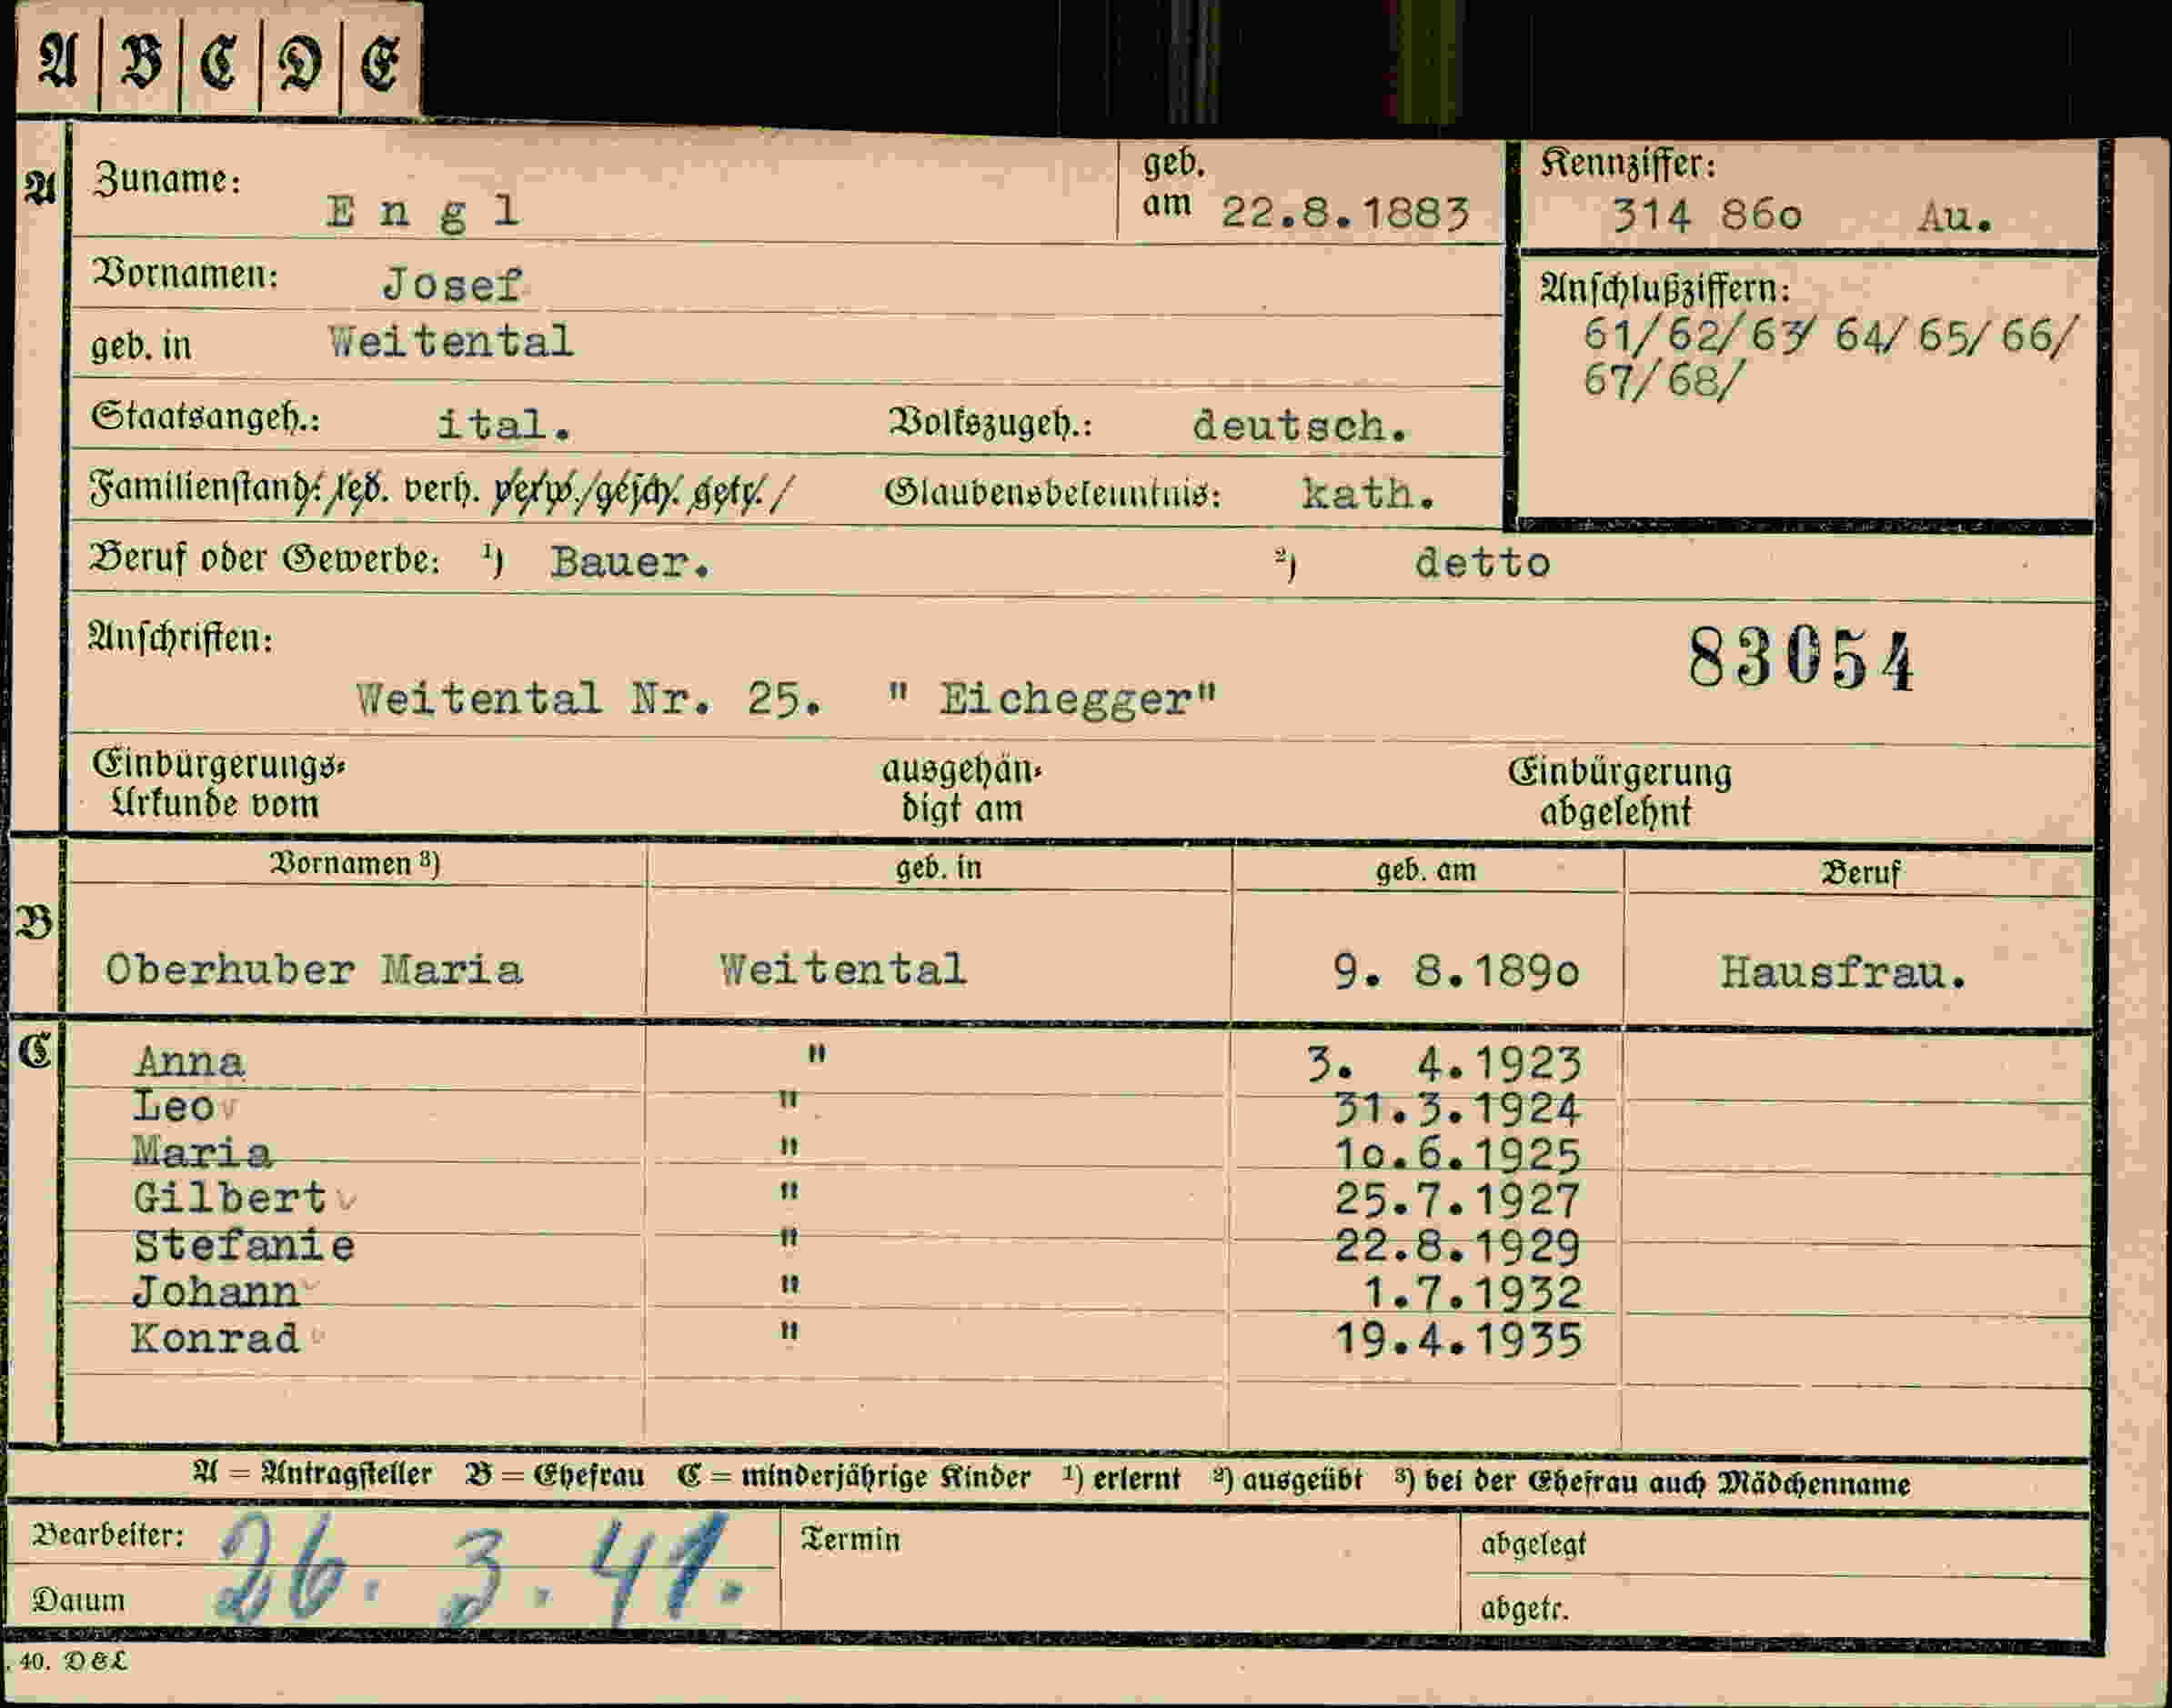 A B C D E
A Zuname: Engl geb. am 22.8.1883 Kennziffer: 314 86o Au.
Vornamen: Josef Anschlußziffern:
geb. in Weitental 61/62/63/ 64/65/66/
67/68/
Staatsangeh.: ital. Volkszugeh.: deutsch.
Familienstand: led. verh. verw. gesch. getr. Glaubensbekenntnis: kath.
Beruf oder Gewerbe: ¹) Bauer. ²) detto
Anschriften: 83054
Weitental Nr. 25. " Eichegger"
Einbürgerungs- ausgehän- Einbürgerung
Urkunde vom digt am abgelehnt
Vornamen ³) geb. in geb. am Beruf
B
Oberhuber Maria Weitental 9. 8.189o Hausfrau.
C Anna " 3. 4.1923
Leo " 31.3.1924
Maria " 1o.6.1925
Gilbert " 25.7.1927
Stefanie " 22.8.1929
Johann " 1.7.1932
Konrad " 19.4.1935
A = Antragsteller B = Ehefrau C = minderjährige Kinder ¹) erlernt ²) ausgeübt ³) bei der Ehefrau auch Mädchenname
Bearbeiter: 26. 3. 41. Termin abgelegt
Datum abgetr.
. 40. D & L